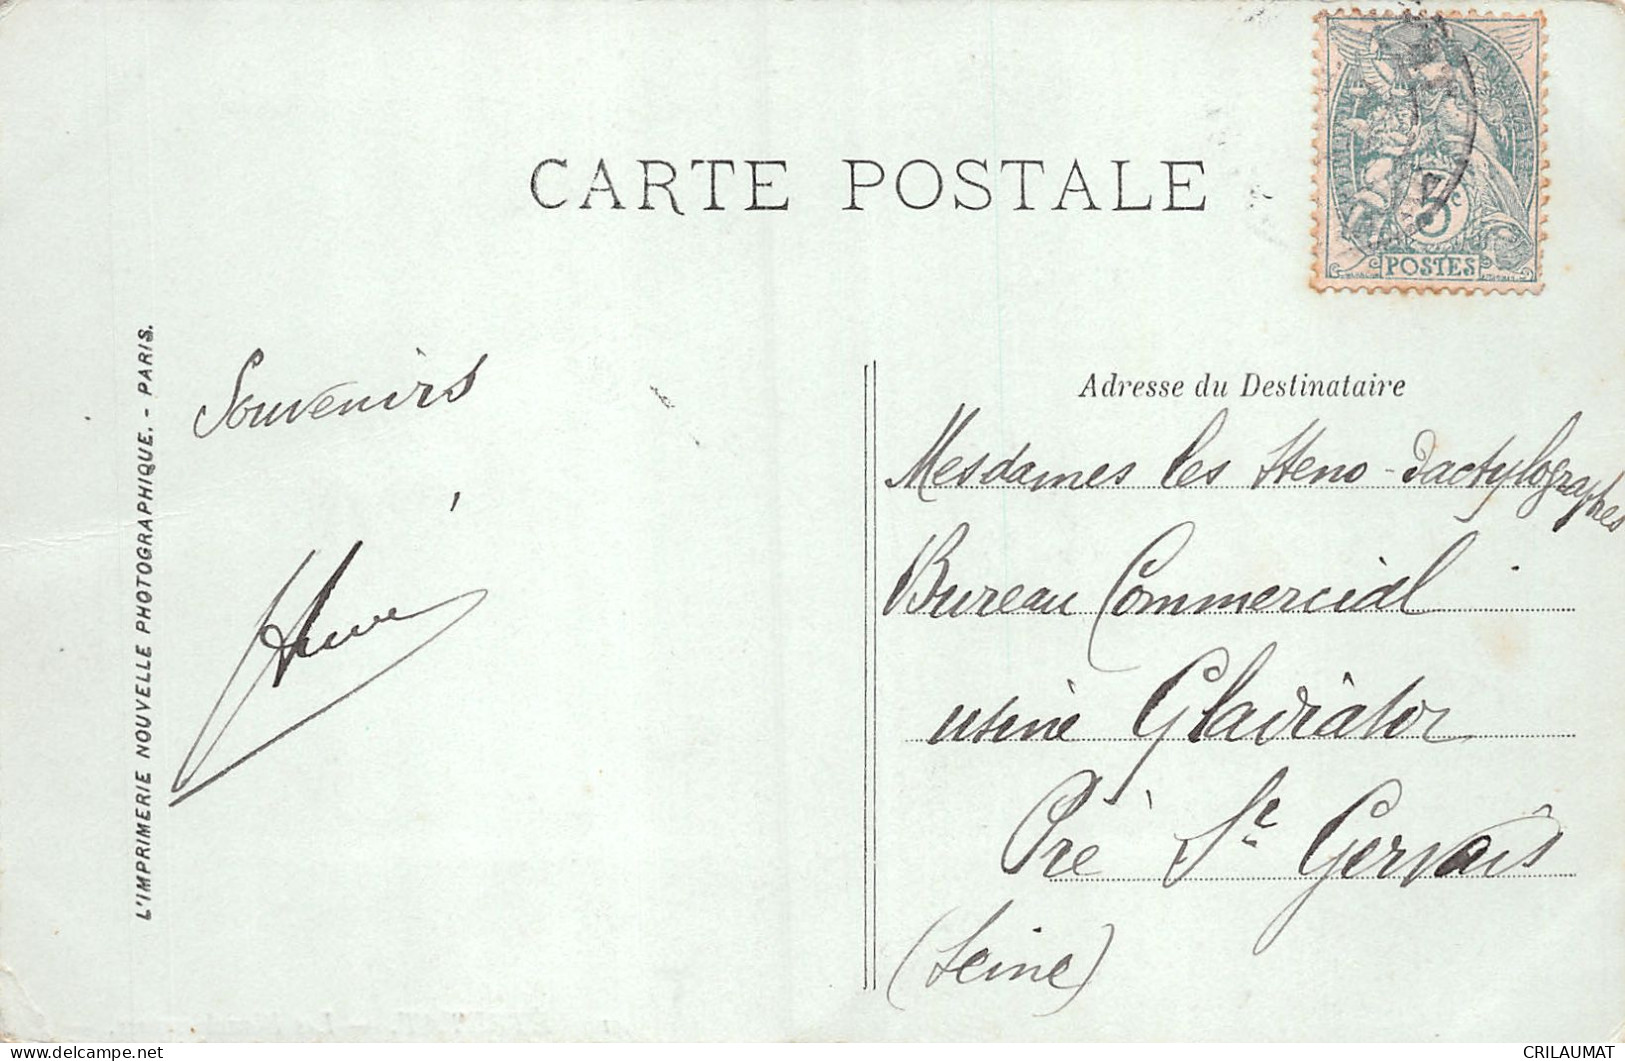 CARTE POSTALE
RÉPUBLIQUE FRANÇAISE
5c
POSTES
L'IMPRIMERIE NOUVELLE PHOTOGRAPHIQUE. - PARIS.
Souvenirs
Adresse du Destinataire
Mesdames les Steno-dactylographes
Bureau Commercial
usine Gladiator
Pré St Gervais
(Seine)
CRILAUMAT